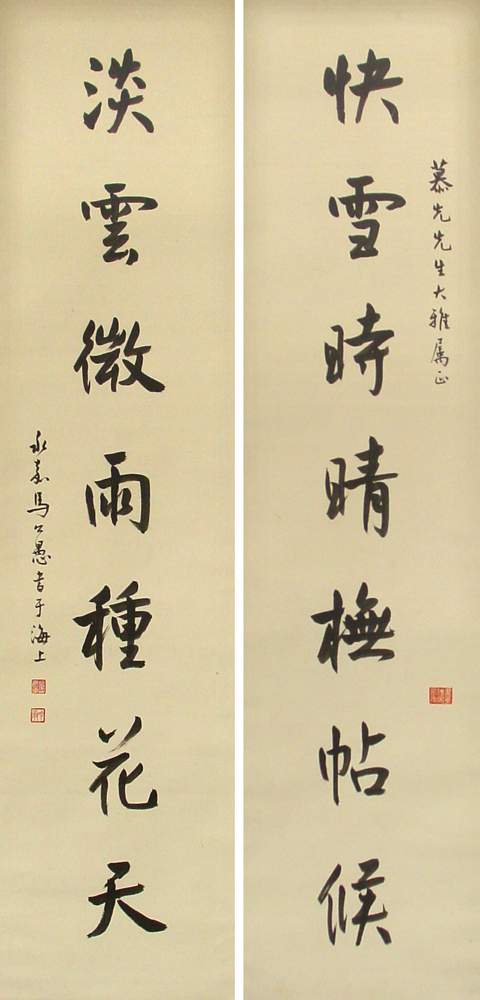 慕先先生大雅属正
快雪時晴橅帖候
淡雲微雨種花天
永嘉馬公愚書于海上